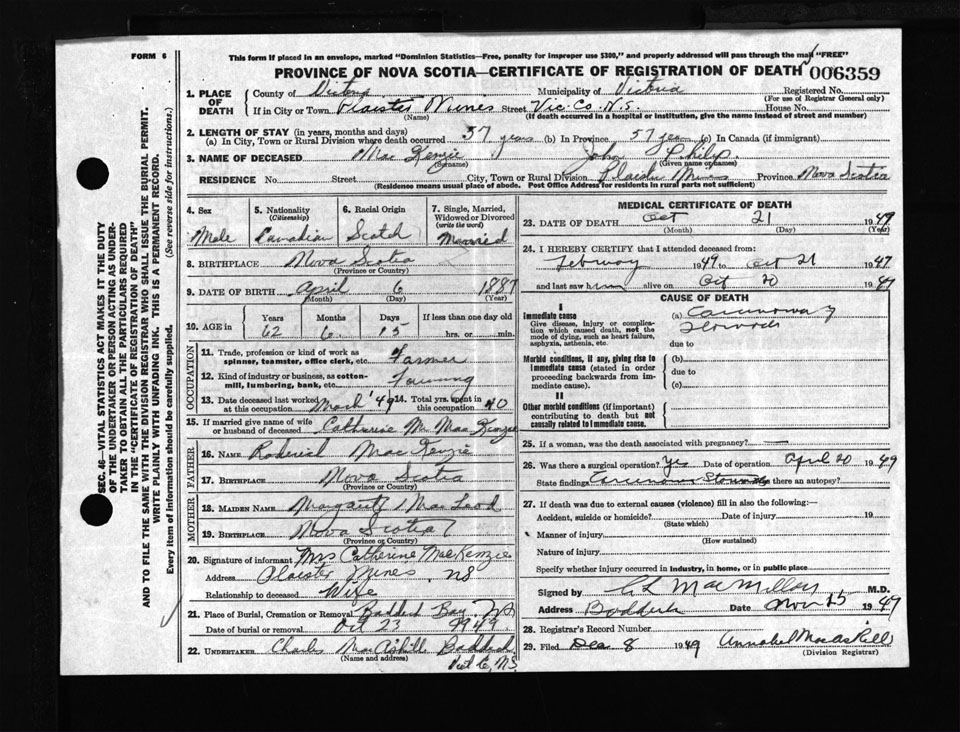 FORM 6
This form if placed in an envelope, marked "Dominion Statistics—Free, penalty for improper use $300," and properly addressed will pass through the mail "FREE"
PROVINCE OF NOVA SCOTIA—CERTIFICATE OF REGISTRATION OF DEATH 006359
SEC. 46—VITAL STATISTICS ACT MAKES IT THE DUTY
OF THE UNDERTAKER OR PERSON ACTING AS UNDER-
TAKER TO OBTAIN ALL THE PARTICULARS REQUIRED
IN THE "CERTIFICATE OF REGISTRATION OF DEATH"
AND TO FILE THE SAME WITH THE DIVISION REGISTRAR WHO SHALL ISSUE THE BURIAL PERMIT.
WRITE PLAINLY WITH UNFADING INK. THIS IS A PERMANENT RECORD.
Every item of information should be carefully supplied. (See reverse side for instructions.)
1. PLACE OF DEATH
County of Victoria Municipality of Victoria Registered No.
(For use of Registrar General only)
If in City or Town Plaister Mines Street Vic. Co. N.S. House No.
(Name) (If death occurred in a hospital or institution, give the name instead of street and number)
2. LENGTH OF STAY (in years, months and days)
(a) In City, Town or Rural Division where death occurred 57 years (b) In Province 57 years (c) In Canada (if immigrant)
3. NAME OF DECEASED Mac Kenzie John Philip
(Surname) (Given name or names)
RESIDENCE No. Street City, Town or Rural Division Plaister Mines Province Nova Scotia
(Residence means usual place of abode. Post Office Address for residents in rural parts not sufficient)
4. Sex
Male
5. Nationality
(Citizenship)
Canadian
6. Racial Origin
Scotch
7. Single, Married, Widowed or Divorced
(write the word)
Married
8. BIRTHPLACE Nova Scotia
(Province or Country)
9. DATE OF BIRTH April 6 1887
(Month) (Day) (Year)
10. AGE in Years Months Days If less than one day old
62 6 15 hrs. or min.
OCCUPATION
11. Trade, profession or kind of work as
spinner, teamster, office clerk, etc. Farmer
12. Kind of industry or business, as cotton-
mill, lumbering, bank, etc. Farming
13. Date deceased last worked at this occupation March '49 14. Total yrs. spent in this occupation 40
15. If married give name of wife or husband of deceased Catherine M. Mac Kenzie
FATHER
16. NAME Roderick Mac Kenzie
17. BIRTHPLACE Nova Scotia
(Province or Country)
MOTHER
18. MAIDEN NAME Margaret Mac Leod
19. BIRTHPLACE Nova Scotia
(Province or Country)
20. Signature of informant Mrs Catherine MacKenzie
Address Plaister Mines, N.S
Relationship to deceased Wife
21. Place of Burial, Cremation or Removal Baddeck Bay, N.S
Date of burial or removal Oct 23 1949
22. UNDERTAKER Charles MacAskill Baddeck
(Name and address) Vict Co, N.S.
MEDICAL CERTIFICATE OF DEATH
23. DATE OF DEATH Oct 21 1949
(Month) (Day) (Year)
24. I HEREBY CERTIFY that I attended deceased from:
February 1949 to Oct 21 1947
and last saw him alive on Oct 20 1947
CAUSE OF DEATH
I
Immediate cause
Give disease, injury or complication which caused death, not the mode of dying, such as heart failure, asphyxia, asthenia, etc.
(a) Carcinoma of
Stomach
due to
Morbid conditions, if any, giving rise to immediate cause (stated in order proceeding backwards from immediate cause).
(b)
due to
(c)
II
Other morbid conditions (if important) contributing to death but not causally related to immediate cause.
25. If a woman, was the death associated with pregnancy? —
26. Was there a surgical operation? Yes Date of operation April 20 1949
State findings Carcinoma Stomach Was there an autopsy?
27. If death was due to external causes (violence) fill in also the following:—
Accident, suicide or homicide? Date of injury 19
(State which)
Manner of injury
(How sustained)
Nature of injury
Specify whether injury occurred in industry, in home, or in public place
Signed by C L MacMillan M.D.
Address Baddeck Date Nov 25 1947
28. Registrar's Record Number
29. Filed Dec 8 1949 Annabel MacAskill
(Division Registrar)